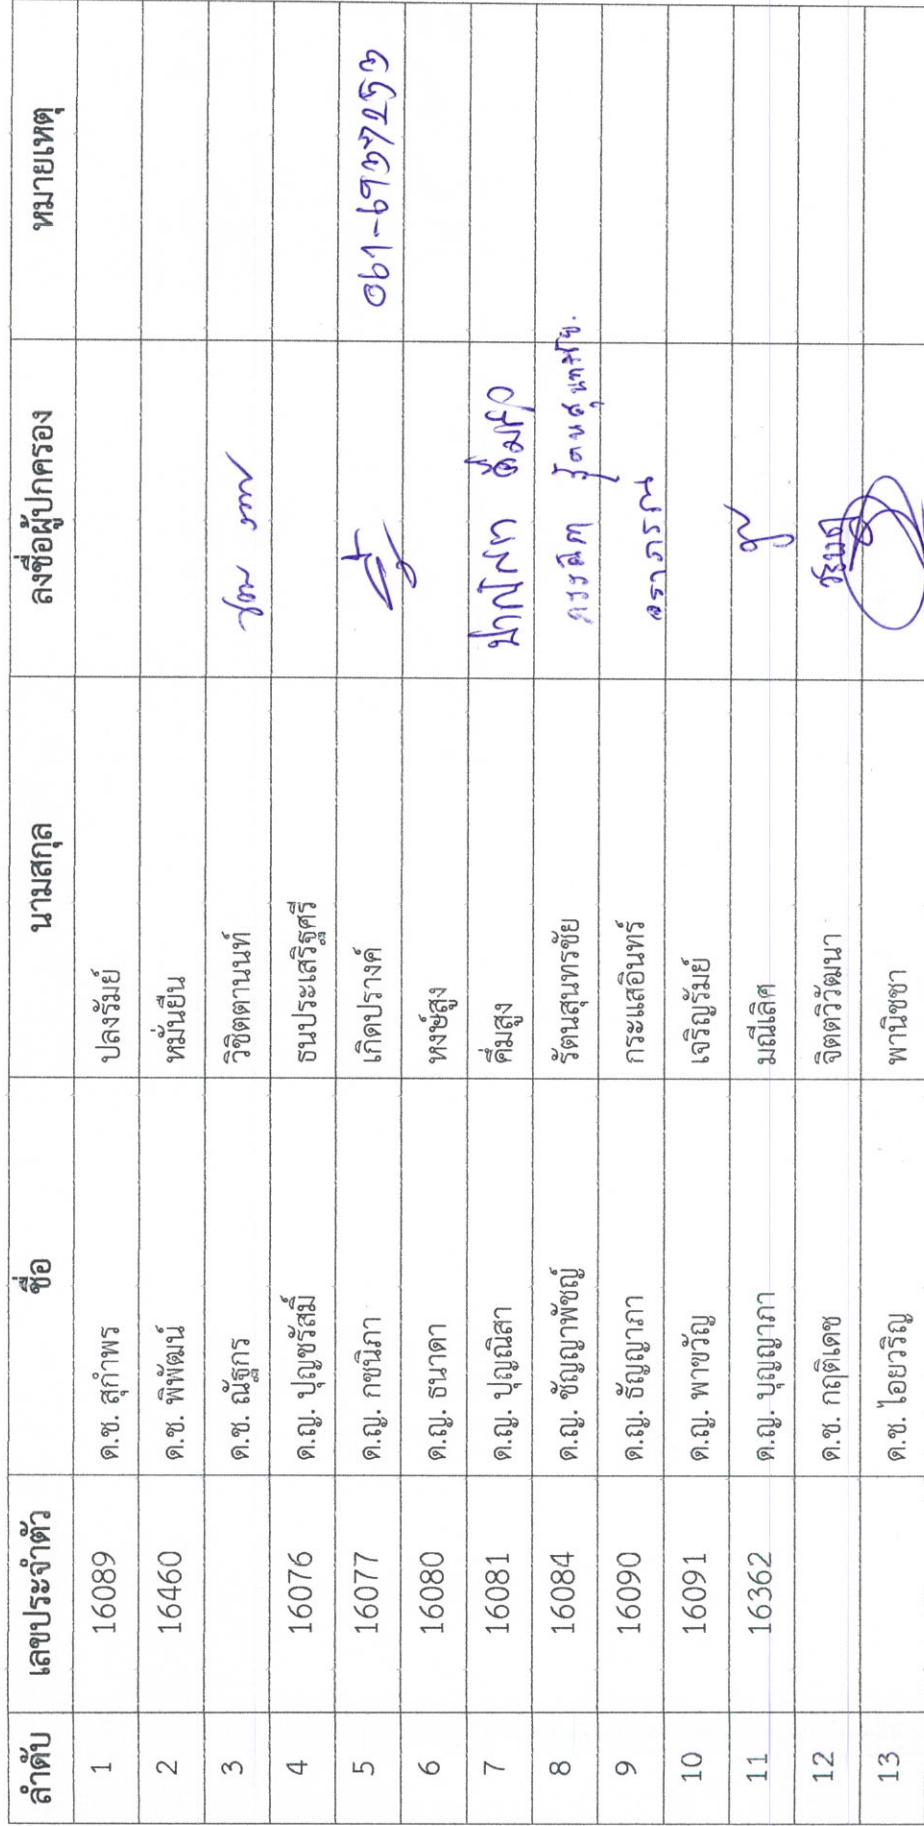 ลำดับ เลขประจำตัว ชื่อ นามสกุล ลงชื่อผู้ปกครอง หมายเหตุ
1 16089 ด.ช. สุกำพร ปลงรัมย์
2 16460 ด.ช. พิพัฒน์ หมั่นยืน
3 ด.ช. ณัฐกร วิชิตตานนท์
4 16076 ด.ญ. ปุญชรัสมิ์ ธนประเสริฐศรี
5 16077 ด.ญ. กชนิภา เกิดปรางค์ 061-6937253
6 16080 ด.ญ. ธนาดา หงษ์สูง
7 16081 ด.ญ. ปุญณิสา คิ่มสูง
8 16084 ด.ญ. ชัญญาพัชญ์ รัตนสุนทรชัย รัตนสุนทรชัย.
9 16090 ด.ญ. ธัญญาภา กระแสอินทร์
10 16091 ด.ญ. พาขวัญ เจริญรัมย์
11 16362 ด.ญ. บุญญาภา มณีเลิศ
12 ด.ช. กฤติเดช จิตตวิวัฒนา
13 ด.ช. ไอยวริญ พานิชชา